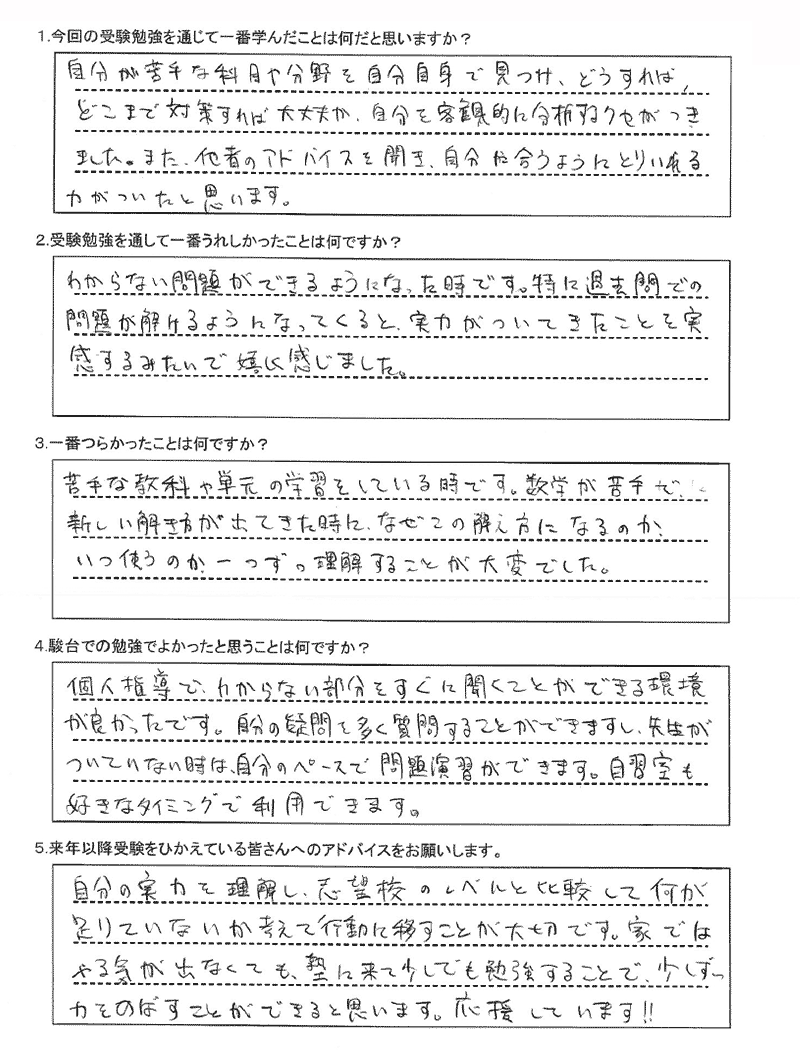 1.今回の受験勉強を通じて一番学んだことは何だと思いますか？
自分が苦手な科目や分野を自分自身で見つけ、どうすれば、
どこまで対策すれば大丈夫か、自分を客観的に分析するクセがつき
ました。また、他者のアドバイスを聞き、自分に合うようにとりいれる
力がついたと思います。
2.受験勉強を通して一番うれしかったことは何ですか？
わからない問題ができるようになった時です。特に過去問での
問題が解けるようになってくると、実力がついてきたことを実
感するみたいで嬉しく感じました。
3.一番つらかったことは何ですか？
苦手な教科や単元の学習をしている時です。数学が苦手で、
新しい解き方が出てきた時に、なぜこの解え方になるのか、
いつ使うのか一つずつ理解することが大変でした。
4.駿台での勉強でよかったと思うことは何ですか？
個人指導で、わからない部分をすぐに聞くことができる環境
が良かったです。自分の疑問を多く質問することができますし、先生が
ついていない時は、自分のペースで問題演習ができます。自習室も
好きなタイミングで利用できます。
5.来年以降受験をひかえている皆さんへのアドバイスをお願いします。
自分の実力を理解し、志望校のレベルと比較して何が
足りていないか考えて行動に移すことが大切です。家では
やる気が出なくても、塾に来て少しでも勉強することで、少しずつ
力をのばすことができると思います。応援しています!!